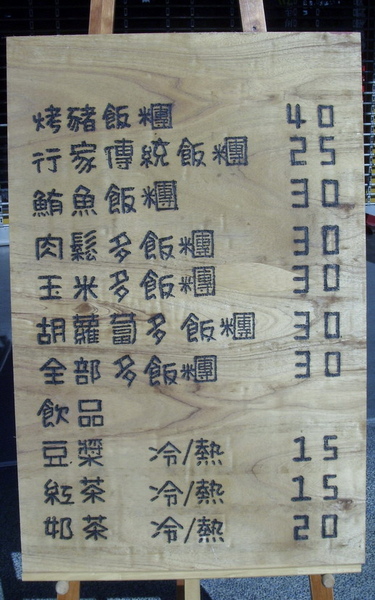 烤豬飯糰 40
行家傳統飯糰 25
鮪魚飯糰 30
肉鬆多飯糰 30
玉米多飯糰 30
胡蘿蔔多飯糰 30
全部多飯糰 30
飲品
豆漿 冷/熱 15
紅茶 冷/熱 15
奶茶 冷/熱 20